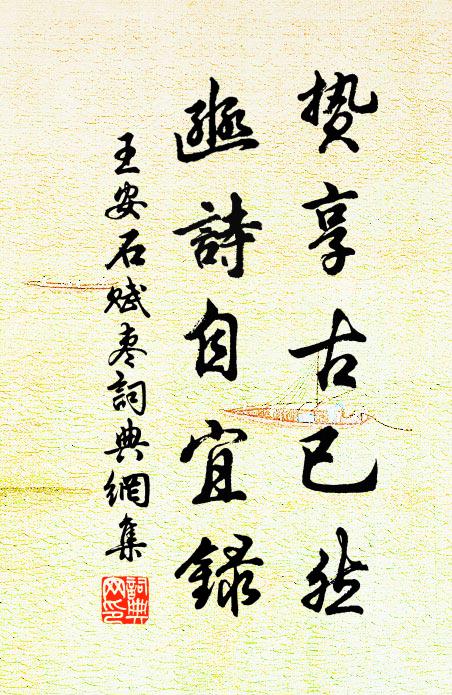 贽享古已然
豳詩自宜録
王安石赋枣詞典網集
詞典
网印